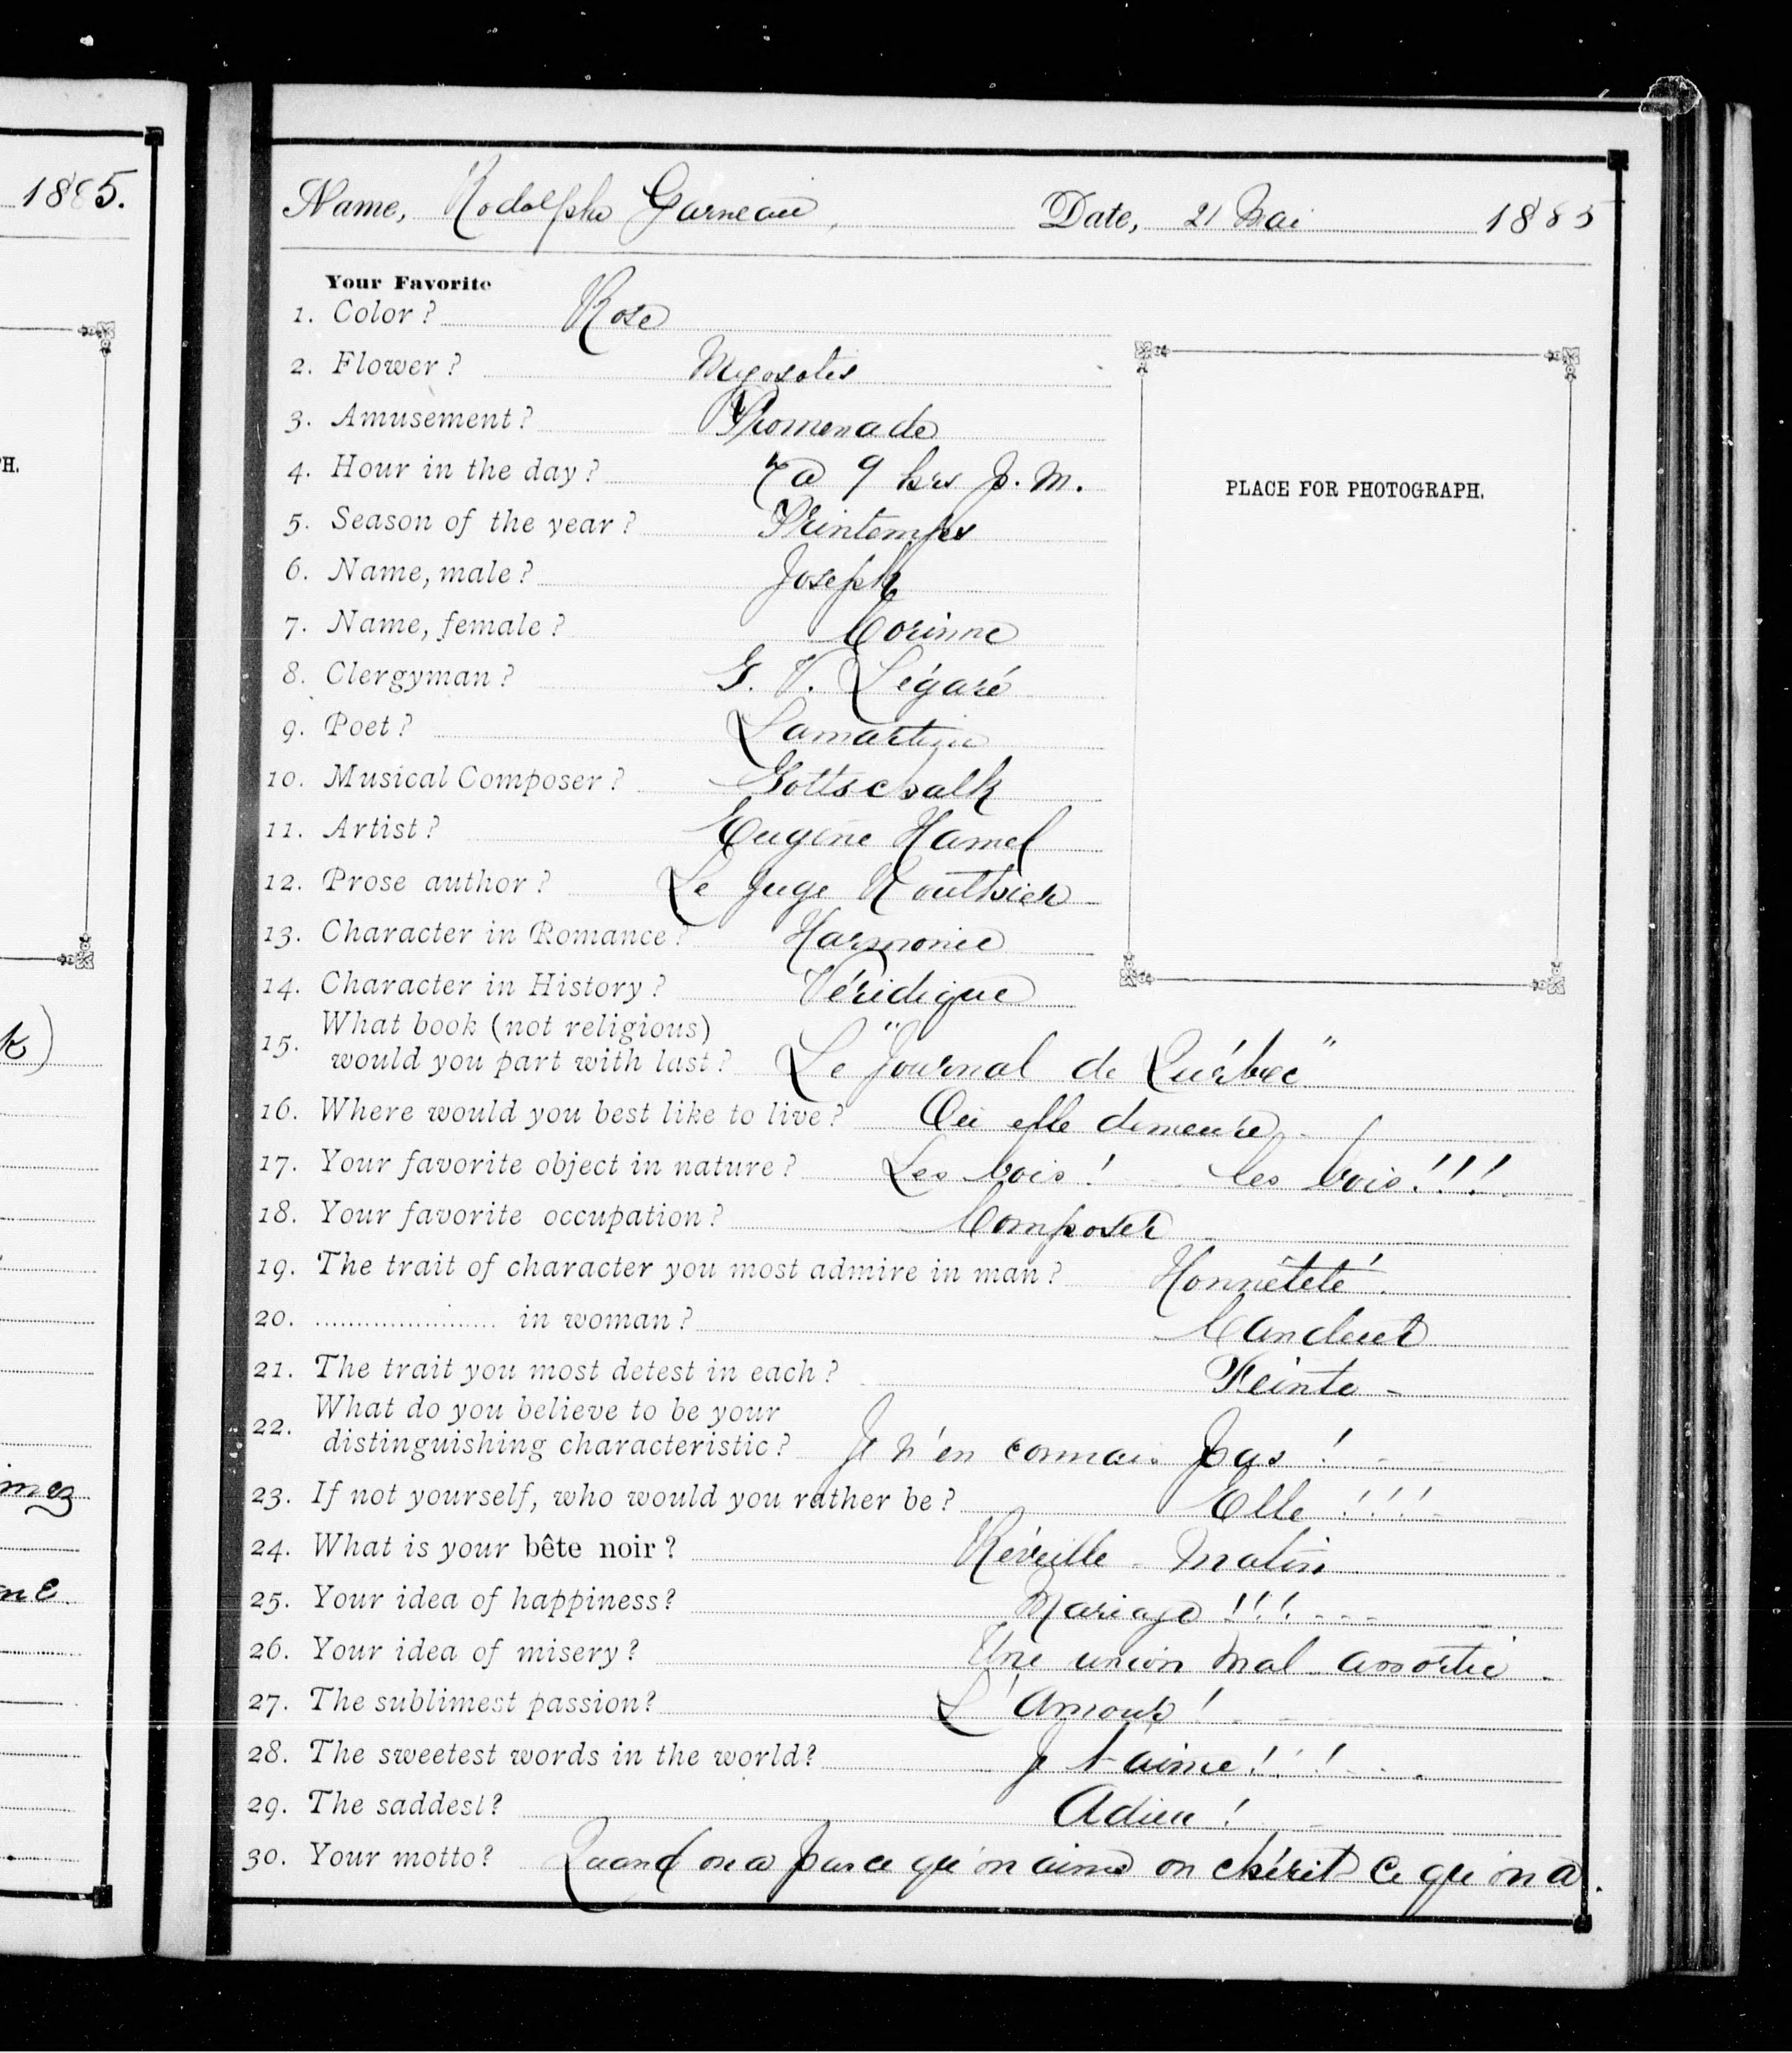 1885.
H.
k)
mez
ne.
Name, Rodolphe Garneau, Date, 21 Mai 1885
Your Favorite
1. Color? Rose
2. Flower? Myosotis
3. Amusement? Promenade
4. Hour in the day? 7 a 9 hrs p. m.
5. Season of the year? Printemps
6. Name, male? Joseph
7. Name, female? Corinne
8. Clergyman? G. V. Légaré
9. Poet? Lamartine
10. Musical Composer? Gottschalk
11. Artist? Eugène Hamel
12. Prose author? Le juge Routhier
13. Character in Romance? Harmonie
14. Character in History? Véridique
15. What book (not religious)
would you part with last? Le "Journal de Québec"
16. Where would you best like to live? Où elle demeure
17. Your favorite object in nature? Les bois! les bois!!!
18. Your favorite occupation? Composer
19. The trait of character you most admire in man? Honnêteté
20. .................... in woman? Candeur
21. The trait you most detest in each? Feinte -
22. What do you believe to be your
distinguishing characteristic? Je n'en connais pas!
23. If not yourself, who would you rather be? Elle!!!
24. What is your bête noir? Réveille-matin
25. Your idea of happiness? Mariage!!!
26. Your idea of misery? Une union mal assortie
27. The sublimest passion? L'Amour!
28. The sweetest words in the world? Je t'aime!!!
29. The saddest? Adieu!
30. Your motto? Quand on a pas ce qu'on aime on chérit ce qu'on a.
PLACE FOR PHOTOGRAPH.